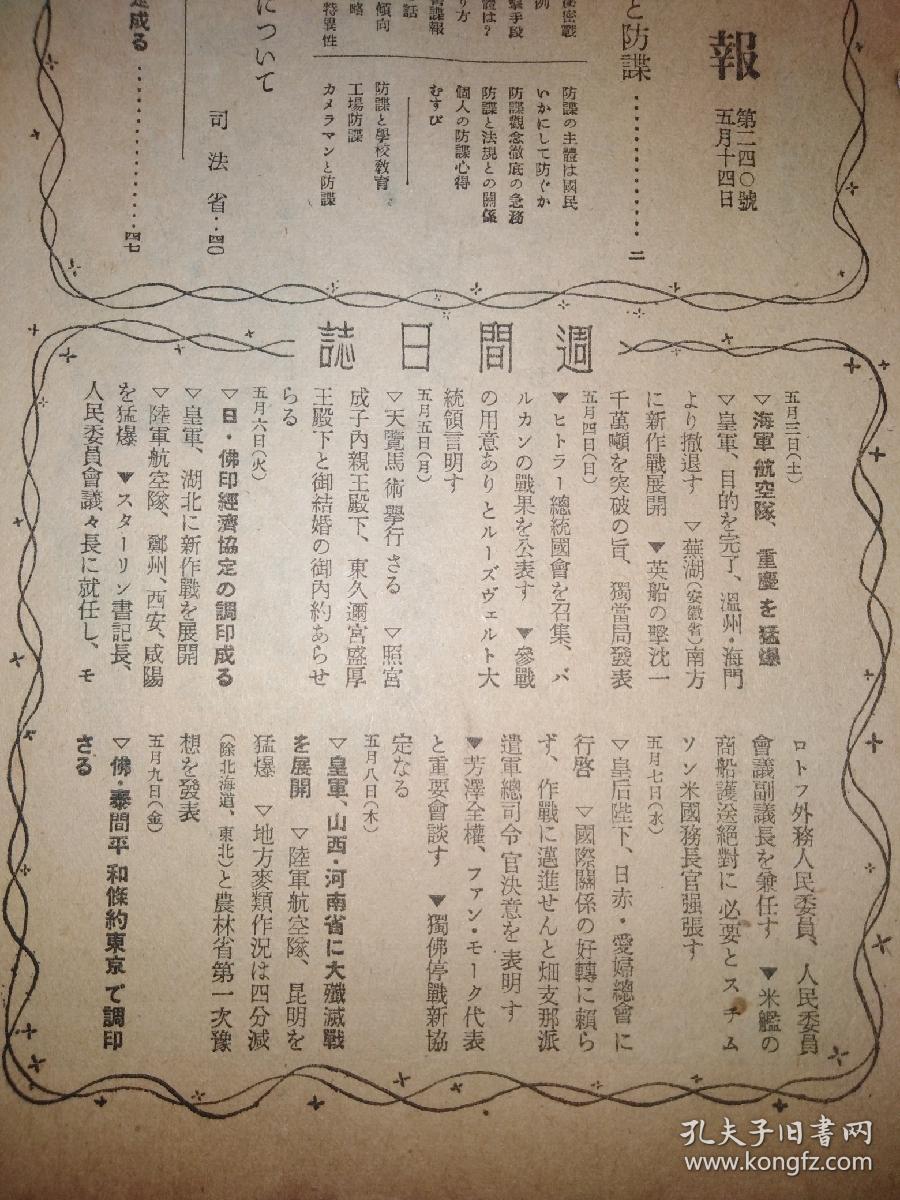 報
第二四〇號
五月十四日
と防諜‥‥‥‥‥‥二
防諜の主體は國民
いかにして防ぐか
防諜觀念徹底の急務
防諜と法規との關係
個人の防諜心得
むすび
防諜と學校敎育
工場防諜
カメラマンと防諜
祕密戰
例
擊手段
體は?
り方
諜報
話
傾向
略
特異性
について
司法省‥四〇
成る‥‥‥‥‥‥四七
週間日誌
五月三日(土)
▽海軍航空隊、重慶を猛爆
▽皇軍、目的を完了、溫州・海門
より撤退す ▽蕪湖(安徽省)南方
に新作戰展開 ▼英船の擊沈一
千萬噸を突破の旨、獨當局發表
五月四日(日)
▼ヒトラー總統國會を召集、バ
ルカンの戰果を公表す ▼參戰
の用意ありとルーズヴェルト大
統領言明す
五月五日(月)
▽天覽馬術擧行さる ▽照宮
成子內親王殿下、東久邇宮盛厚
王殿下と御結婚の御內約あらせ
らる
五月六日(火)
▽日・佛印經濟協定の調印成る
▽皇軍、湖北に新作戰を展開
▽陸軍航空隊、鄭州、西安、咸陽
を猛爆 ▼スターリン書記長、
人民委員會議々長に就任し、モ
ロトフ外務人民委員、人民委員
會議副議長を兼任す ▼米艦の
商船護送絕對に必要とスチム
ソン米國務長官强張す
五月七日(水)
▽皇后陛下、日赤・愛婦總會に
行啓 ▽國際關係の好轉に賴ら
ず、作戰に邁進せんと畑支那派
遣軍總司令官決意を表明す
▼芳澤全權、ファン・モーク代表
と重要會談す ▼獨佛停戰新協
定なる
五月八日(木)
▽皇軍、山西・河南省に大殲滅戰
を展開 ▽陸軍航空隊、昆明を
猛爆 ▽地方麥類作況は四分減
(除北海道、東北)と農林省第一次豫
想を發表
五月九日(金)
▽佛・泰間平和條約東京で調印
さる
孔夫子旧书网
www.kongfz.com